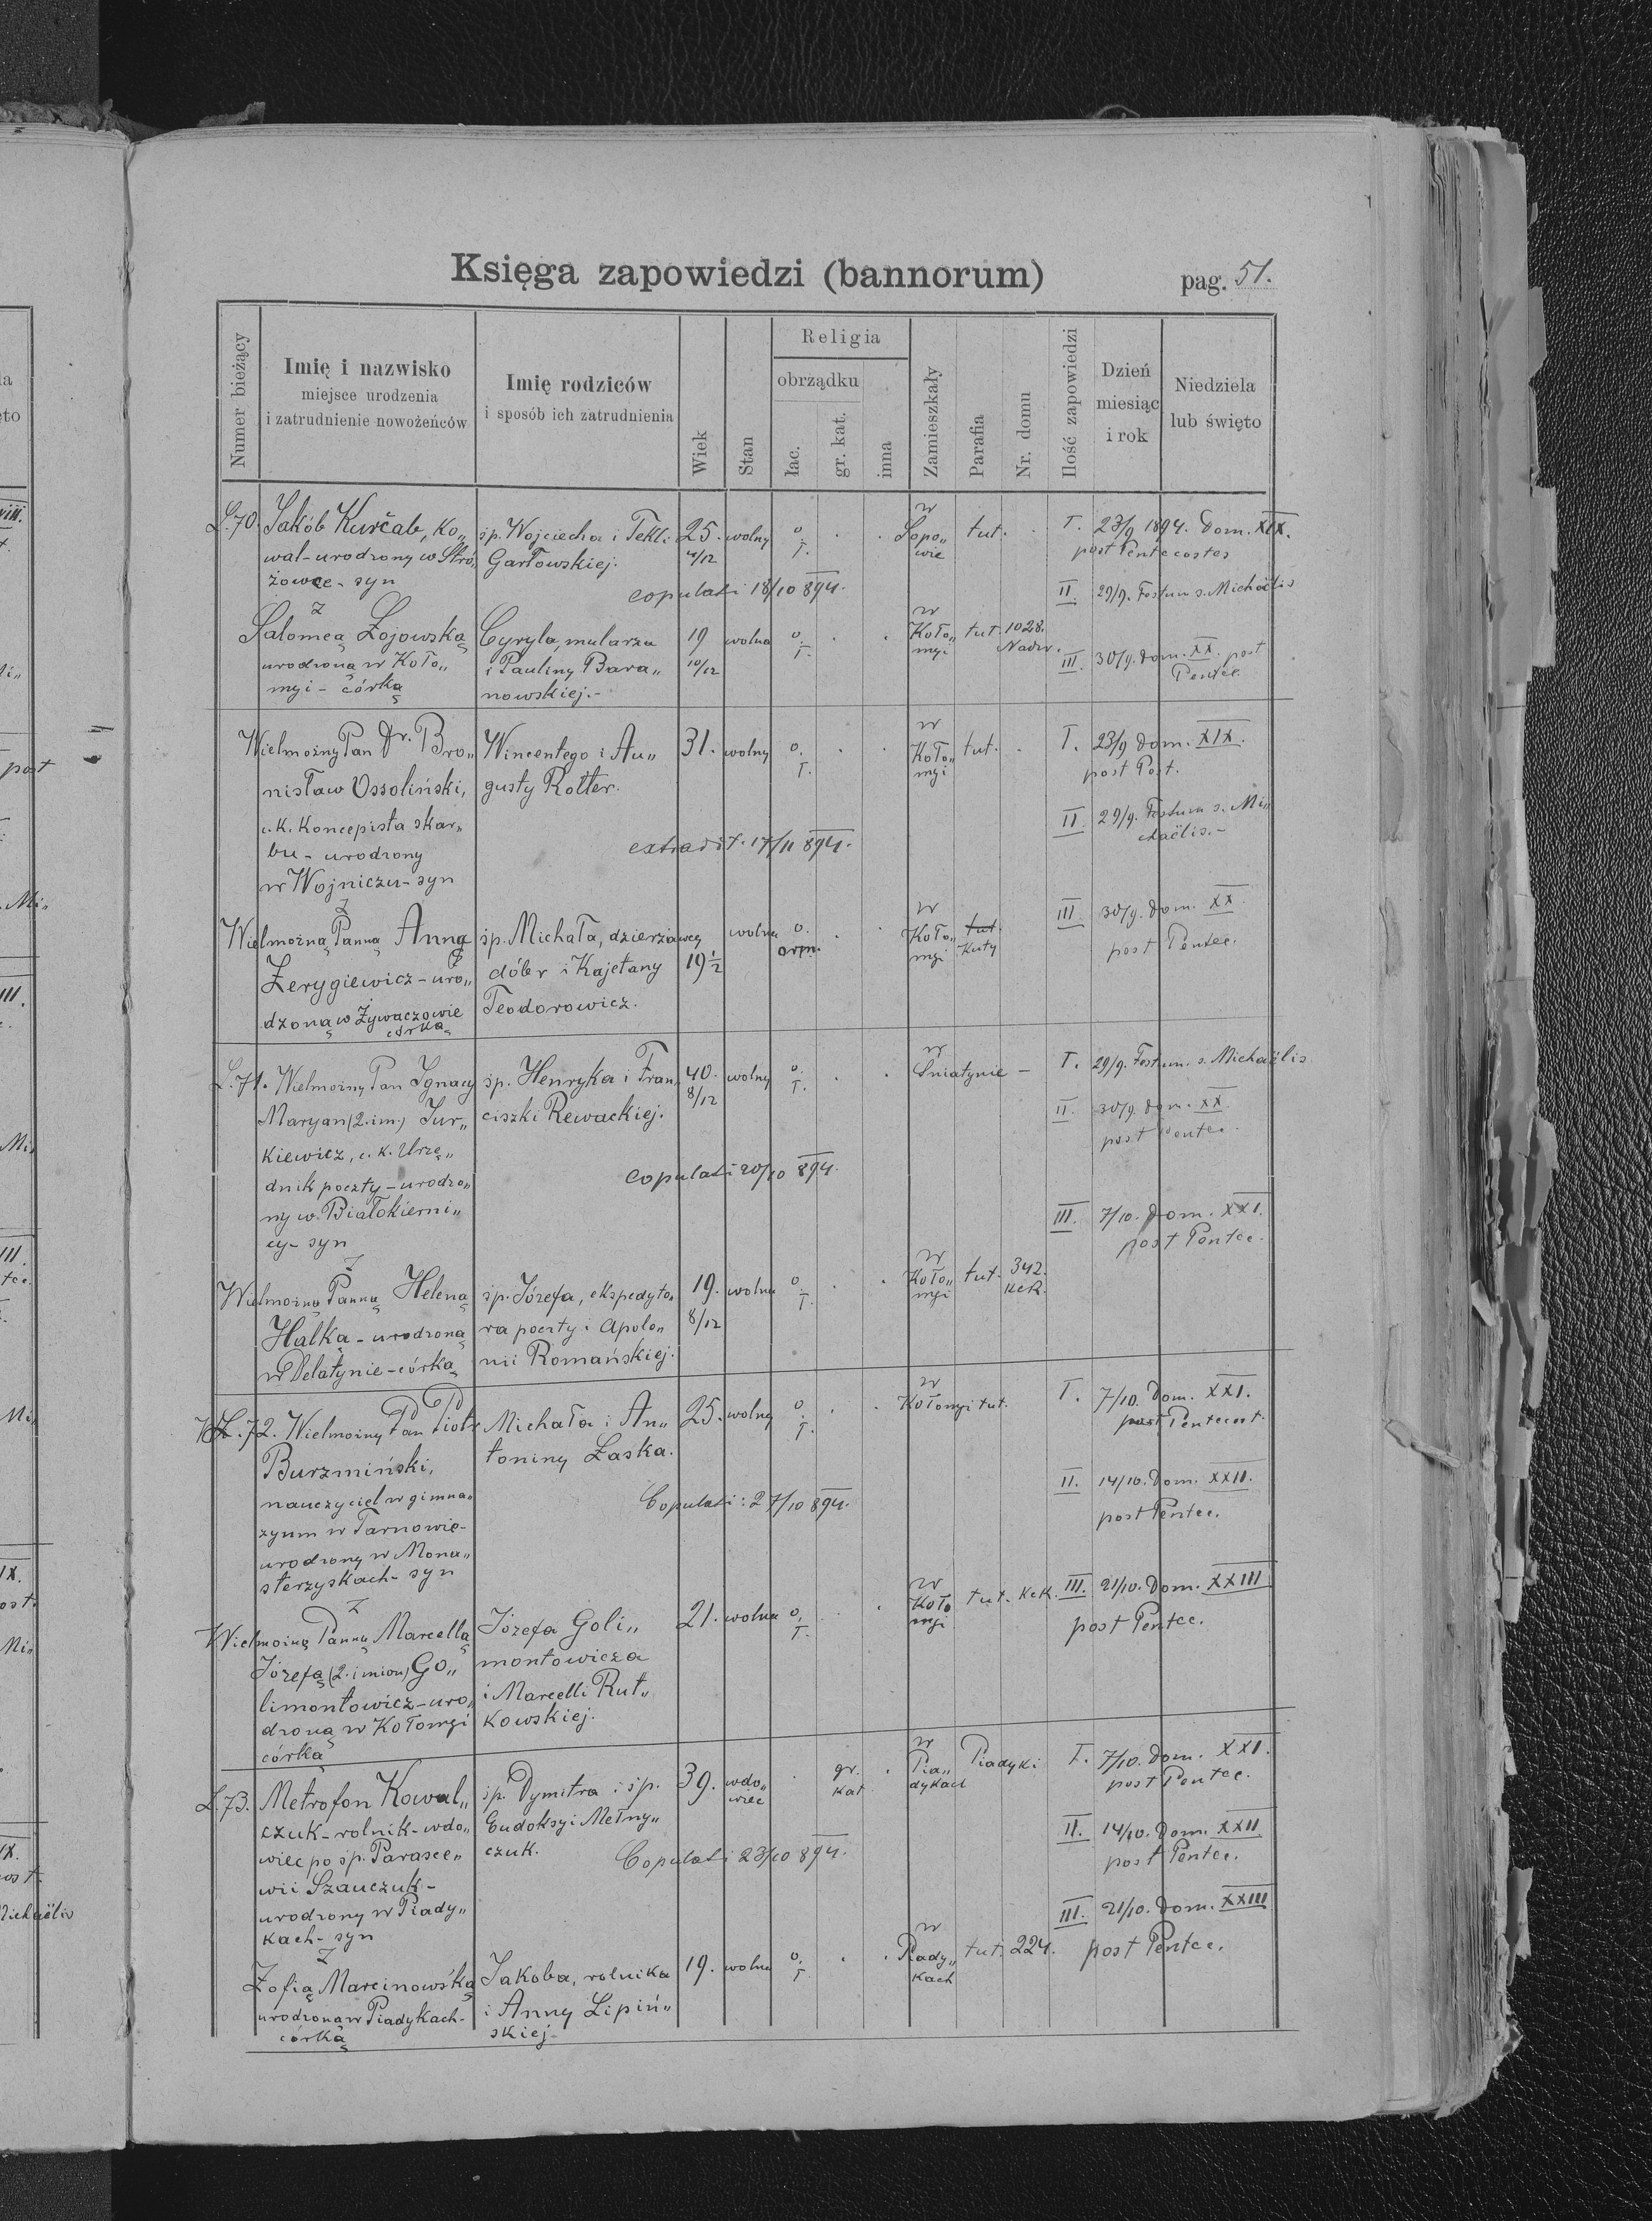 Księga zapowiedzi (bannorum)
pag. 51.
Numer bieżący
Imię i nazwisko
miejsce urodzenia
i zatrudnienie nowożeńców
Imię rodziców
i sposób ich zatrudnienia
Wiek
Stan
Religia
obrządku
łac.
gr. kat.
inna
Zamieszkały
Parafia
Nr. domu
Ilość zapowiedzi
Dzień
miesiąc
i rok
Niedziela
lub święto
L.70. Jakób Kurčab, ko„
wal - urodzony w Stró„
żowce - syn
śp. Wojciecha i Tekli
Garłowskiej.
25. wolny o. ł.
w Sopo„
wie
tut.
I. 23/9 1894. Dom. XIX.
post Pentecostes
copulati 18/10 894.
II. 29/9. Festum s. Michaëlis
z
Salomeą Łojowską
urodzoną w Koło„
myi - córką
Cyryla, mularza
i Pauliny Bara„
nowskiej.-
19 10/12 wolna o. ł.
w Koło„
myi
tut. 1028.
Nadw.
III. 30/9. Dom. XX. post
Pentec.
Wielmożny Pan Dr. Bro„
nisław Ossoliński,
c. k. Koncepista skar„
bu - urodzony
w Wojniczu - syn
Wincentego i Au„
gusty Rotter.
31. wolny o. ł.
w Koło„
myi
tut.
I. 23/9 Dom. XIX.
post Pest.
II. 29/9. Festum s. Mi„
chaëlis.-
extradit. 17/11 894.
z
Wielmożną Panną Anną
Zerygiewicz - uro„
dzoną w Żywaczowie
córką
śp. Michała, dzierżawcy
dóbr i Kajetany
Teodorowicz.
19 1/2 wolna o. orm.
w Koło„
myi
tut.
Kuty
III. 30/9. Dom. XX.
post Pentec.
L.71. Wielmożny Pan Ignacy
Maryan (2. im.) Jur„
kiewicz, c. k. Urzę„
dnik poczty - urodzo„
ny w Białokierni„
cy - syn
śp. Henryka i Fran„
ciszki Rewackiej.
40. 8/12 wolny o. ł.
w Śniatynie -
I. 29/9. Festum. s. Michaëlis
II. 30/9. Dom. XX.
post Pentec.
copulati 20/10 894.
III. 7/10. Dom. XXI.
post Pentec.
z
Wielmożną Panną Heleną
Halką - urodzoną
w Delatynie - córką
śp. Józefa, ekspedyto„
ra poczty i Apolo„
nii Romańskiej.
19. 8/12 wolna o. ł.
w Koło„
myi
tut. 342.
KcK.
L.72. Wielmożny Pan Piotr
Burzmiński,
nauczyciel w gimna„
zyum w Tarnowie -
urodzony w Mona„
sterzyskach - syn
Michała i An„
toniny Łaska.
25. wolny o. ł.
w Kołomyi tut.
I. 7/10. Dom. XXI.
post Pentecost.
II. 14/10. Dom. XXII.
post Pentec.
Copulati: 27/10 894.
z
Wielmożną Panną Marcellą
Józefą (2. imion) Go„
limontowicz - uro„
dzoną w Kołomyi
córką
Józefa Goli„
montowicza
i Marcelli Rut„
kowskiej.
21. wolna o. ł.
w Koło
myi
tut. KcK.
III. 21/10. Dom. XXIII
post Pentec.
L.73. Metrofon Kowal„
czuk - rolnik - wdo„
wiec po śp. Parasce„
wii Szauczuk -
urodzony w Piady„
kach - syn
śp. Dymitra i śp.
Eudoksyi Mełny„
czuk.
39. wdo„
wiec
gr.
kat
w Pia„
dykach
Piadyki
I. 7/10. Dom. XXI.
post Pentec.
II. 14/10. Dom. XXII
post Pentec.
Copulati 23/10 894.
III. 21/10. Dom. XXIII
post Pentec.
z
Zofią Marcinowską
urodzoną w Piadykach -
córką
Jakoba, rolnika
i Anny Lipiń„
skiej.
19. wolna o. ł.
w Piady„
kach
tut. 224.